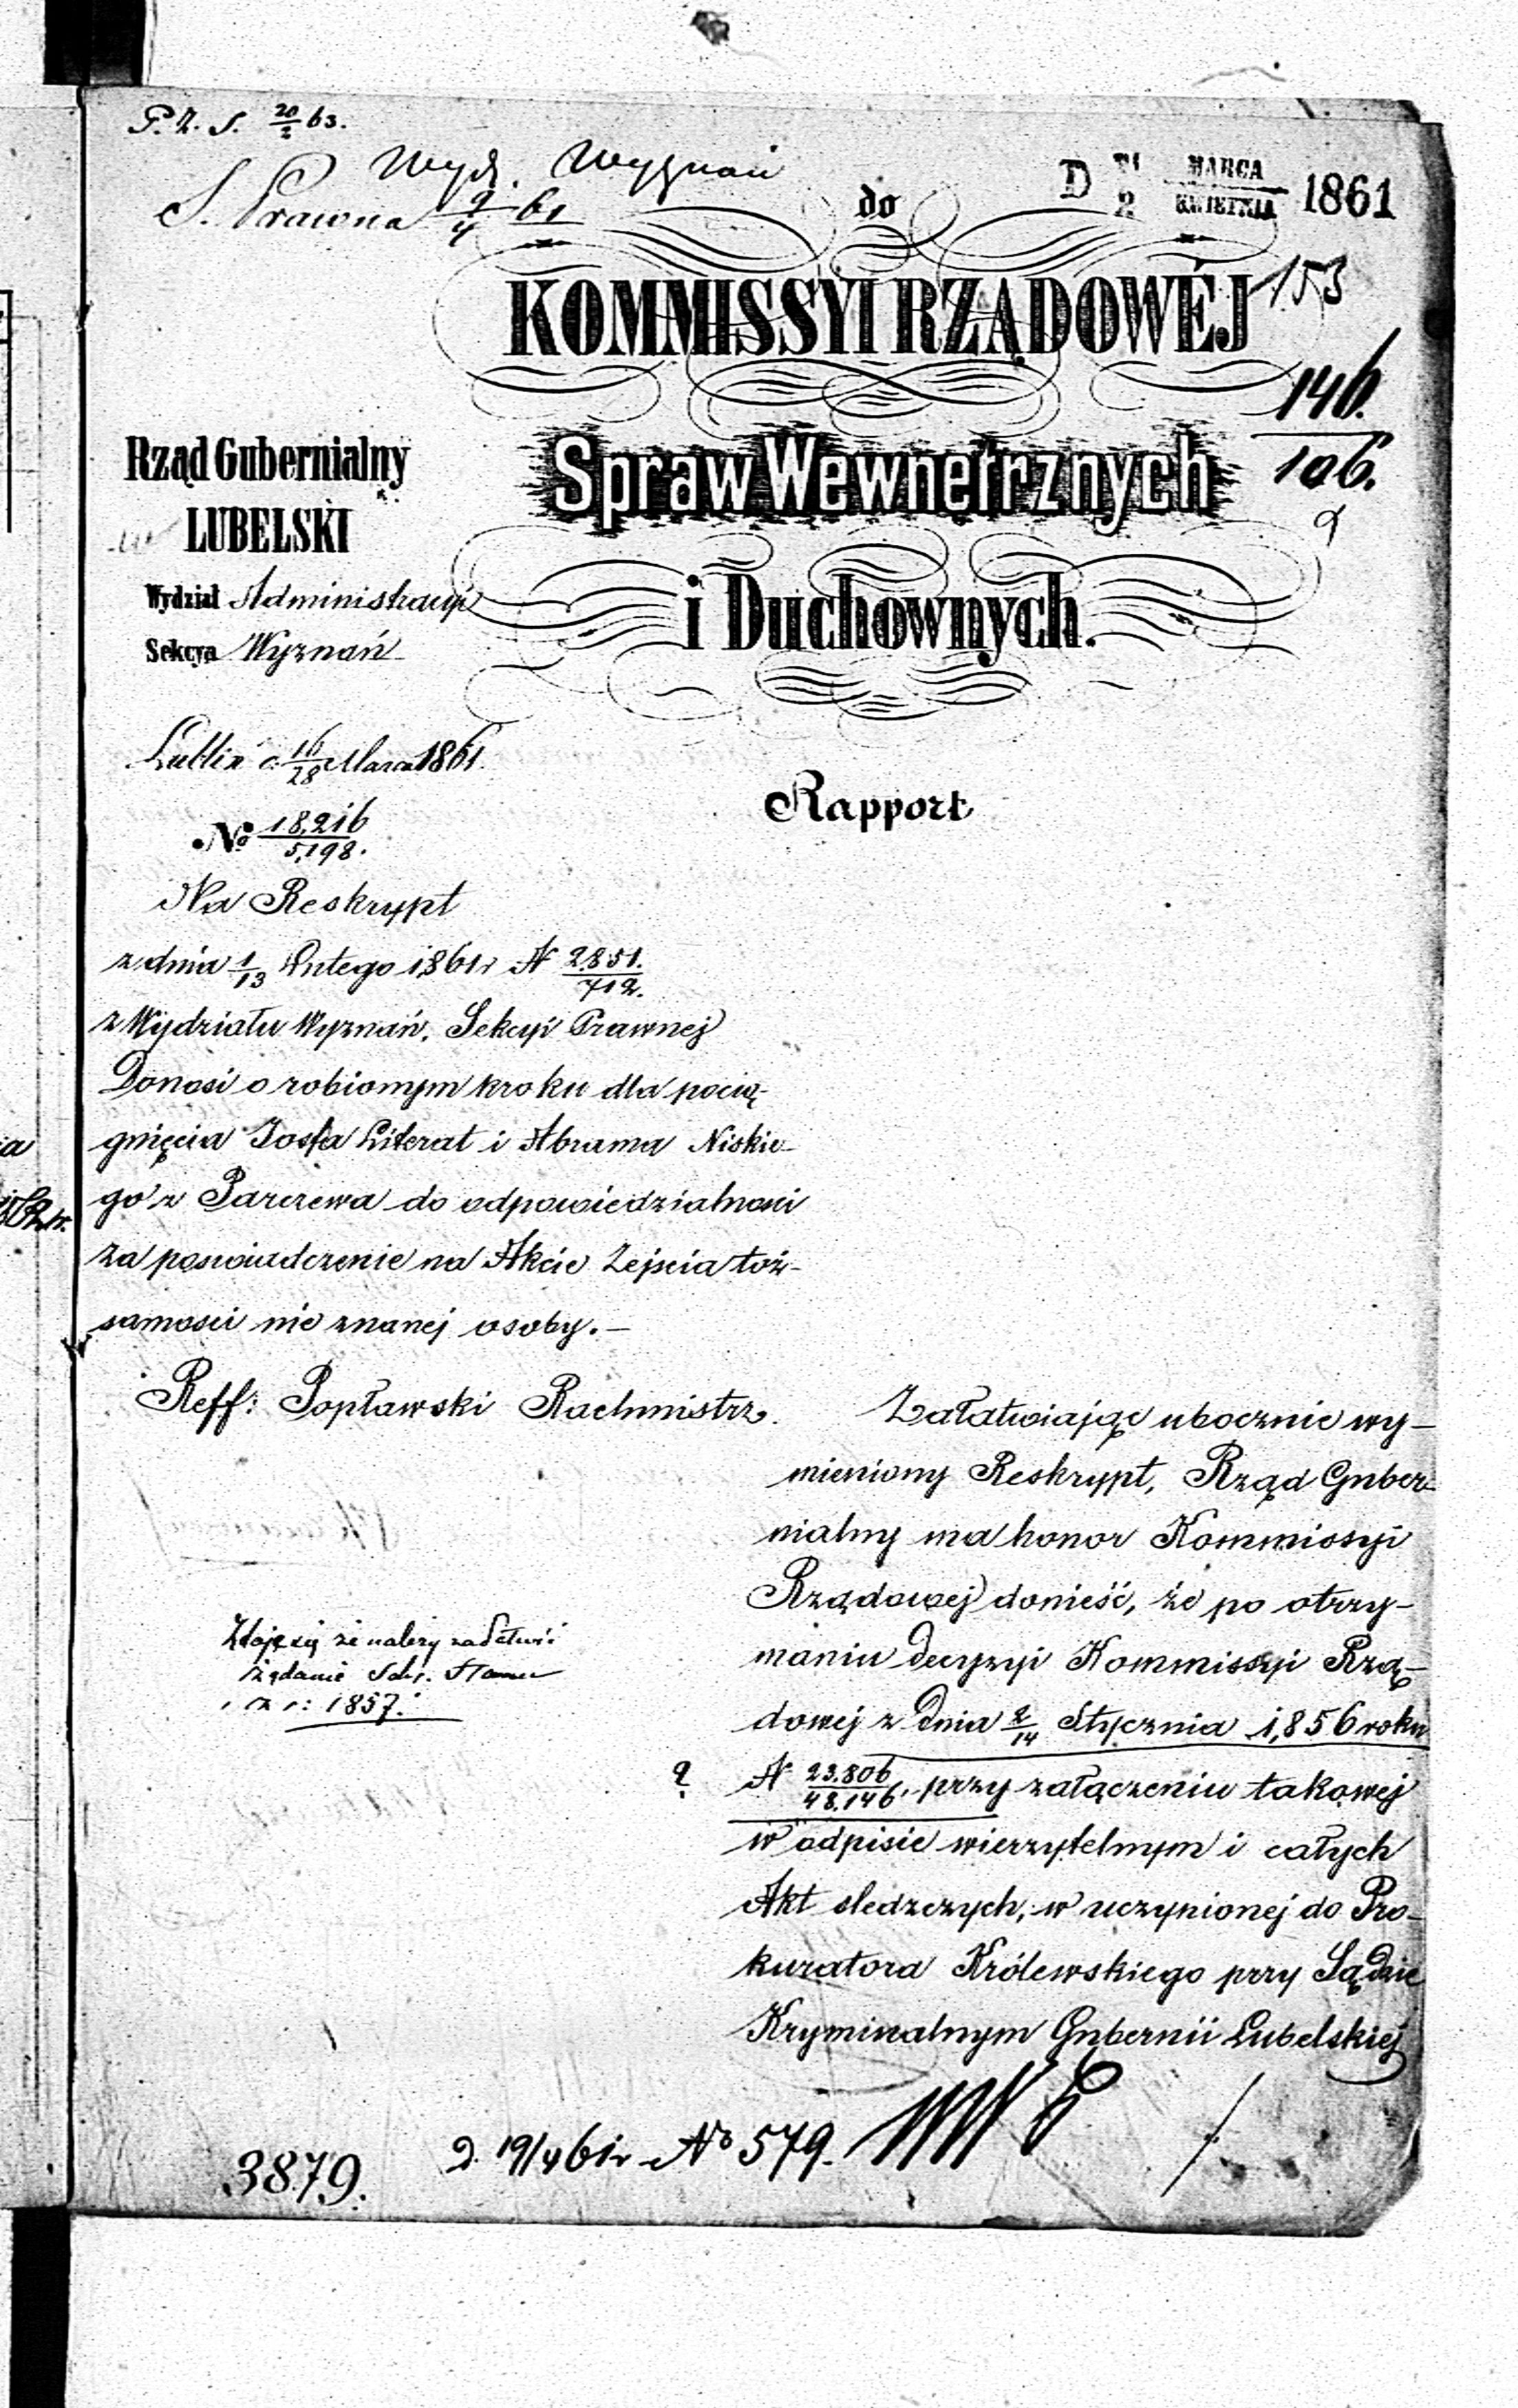 P. Z. S. 20/2 63.
Wydz. Wyznań
S. Prawna 2/4 61
do
D 21/2 MARCA/KWIETNIA 1861
KOMMISSYI RZĄDOWÉJ
153
146.
106.
Spraw Wewnętrznych
i Duchownych.
Rząd Gubernialny
LUBELSKI
Wydział Administracyi
Sekcya Wyznań
Lublin d. 16/28 Marca 1861.
Rapport
No 18,216/5,198.
Na Reskrypt
z dnia 1/13 Lutego 1861 r N 2851./712.
z Wydziału Wyznań. Sekcyi Prawnej
Donosi o robionym kroku dla pocią-
gnięcia Josfa Literat i Abrama Niskie-
go z Parczewa do odpowiedzialnosci
za poswiadczenie na Akcie Zejscia toż-
samosci nie znanej osoby. —
Reff: Popławski Rachmistrz.
Załatwiając ubocznie wy-
mieniony Reskrypt, Rząd Guber-
nialny ma honor Kommissyi
Rządowej donieść, że po otrzy-
maniu decyzyi Kommissyi Rzą-
dowej z dnia 2/14 Stycznia 1,856 roku
N 23.806/48.146, przy załączeniu takowej
w odpisie wierzytelnym i całych
Akt sledczych, w uczynionej do Pro-
kuratora Królewskiego przy Sądzie
Kryminalnym Gubernii Lubelskiej
Zdaje się że należy załatwić
żądanie
z r: 1857.
?
3879.
D. 19/4 61 r No 579.